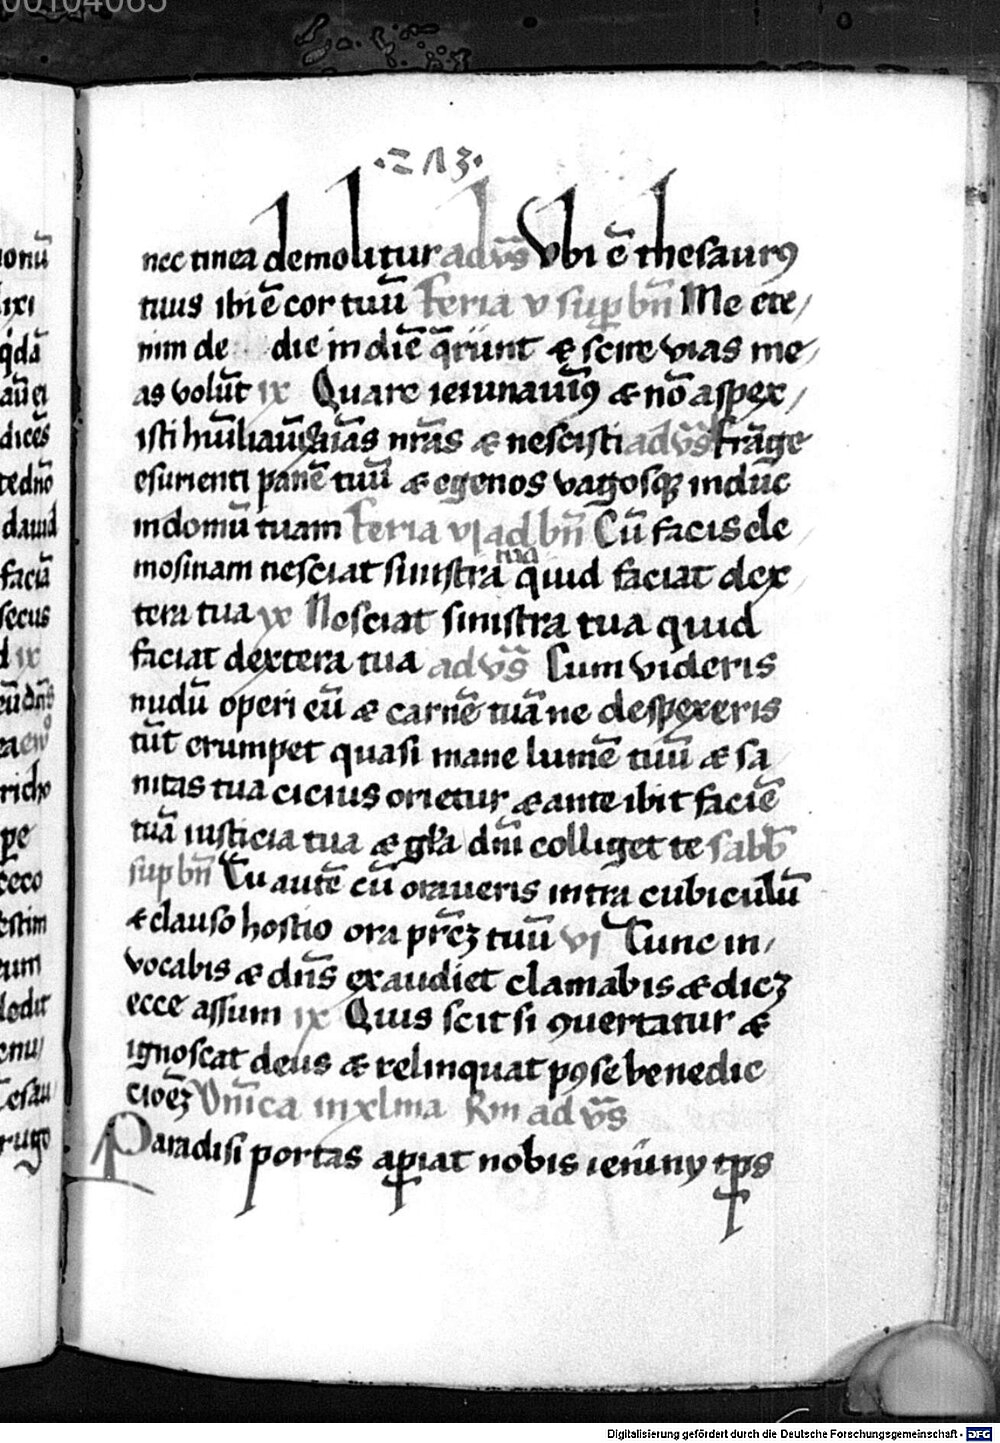 00104065
·Z Λ 3·
nec tinea demolitur ad vs̄ Vbi ē thesaurꝯ
tuus ibi ē cor tuū Feria v sup bn̄ Me ete/
nim de die in diē q̄rūnt & scire vias me/
as volūt ix Quare ieiunauim̄ꝯ & nō aspex/
isti hūiliauim̄ aīas nrās & nescisti ad vs̄ frāge
esurienti panē tuū & egenos vagosqꝫ induc̄
in domū tuam Feria vi ad bn̄ Cū facis ele
mosinam nesciat sinistra tua quid faciat dex/
tera tua ix Nesciat sinistra tua quid
faciat dextera tua ad vs̄ Cum videris
nudū operi eū & carnē tuā ne despexeris
tūt erumpet quasi mane lumē tuū & sa/
nitas tua cicius orietur & ante ibit faciē
tuā iusticia tua & gl̄a dn̄i colliget te sabb̄
sup bn̄ Tu autē cū oraueris intra cubiculū
& clauso hostio ora pr̄eꝫ tuū vi Tunc in/
vocabis & dn̄s exaudiet clamabis & dicꝫ
ecce assum ix Quis scit si ꝯuertatur &
ignoscat deus & relinquat pꝯ se benedic
cioēꝫ Vn̄ica in xlma Rm ad vs̄
Paradisi portas aꝑiat nobis ieiuny tꝑs
Digitalisierung gefördert durch die Deutsche Forschungsgemeinschaft - DFG